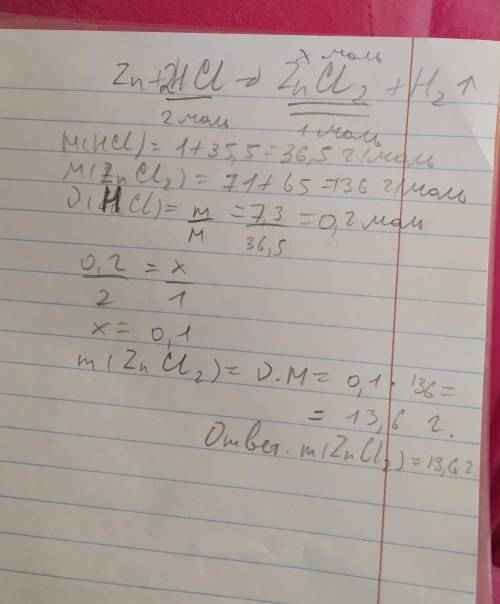 x моль
Zn+2HCl → ZnCl2 + H2↑
2 моль 1 моль
M(HCl) = 1+35,5=36,5 г/моль
M(ZnCl2) = 71+65=136 г/моль
ν(HCl)= m/M = 7,3/36,5 = 0,2 моль
0,2/2 = x/1
x = 0,1
m(ZnCl2) = ν.M = 0,1 · 136 =
= 13,6 г.
Ответ. m(ZnCl2) = 13,6 г